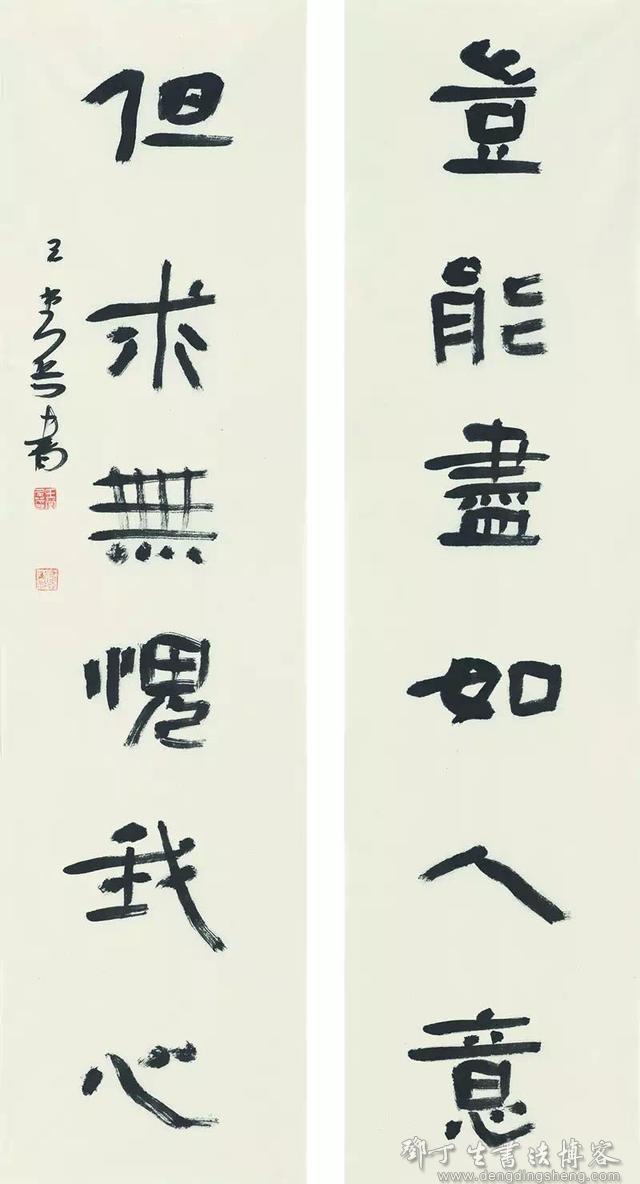 豈能盡如人意
但求無愧我心
鄧丁生書法博客
www.dengdingsheng.com